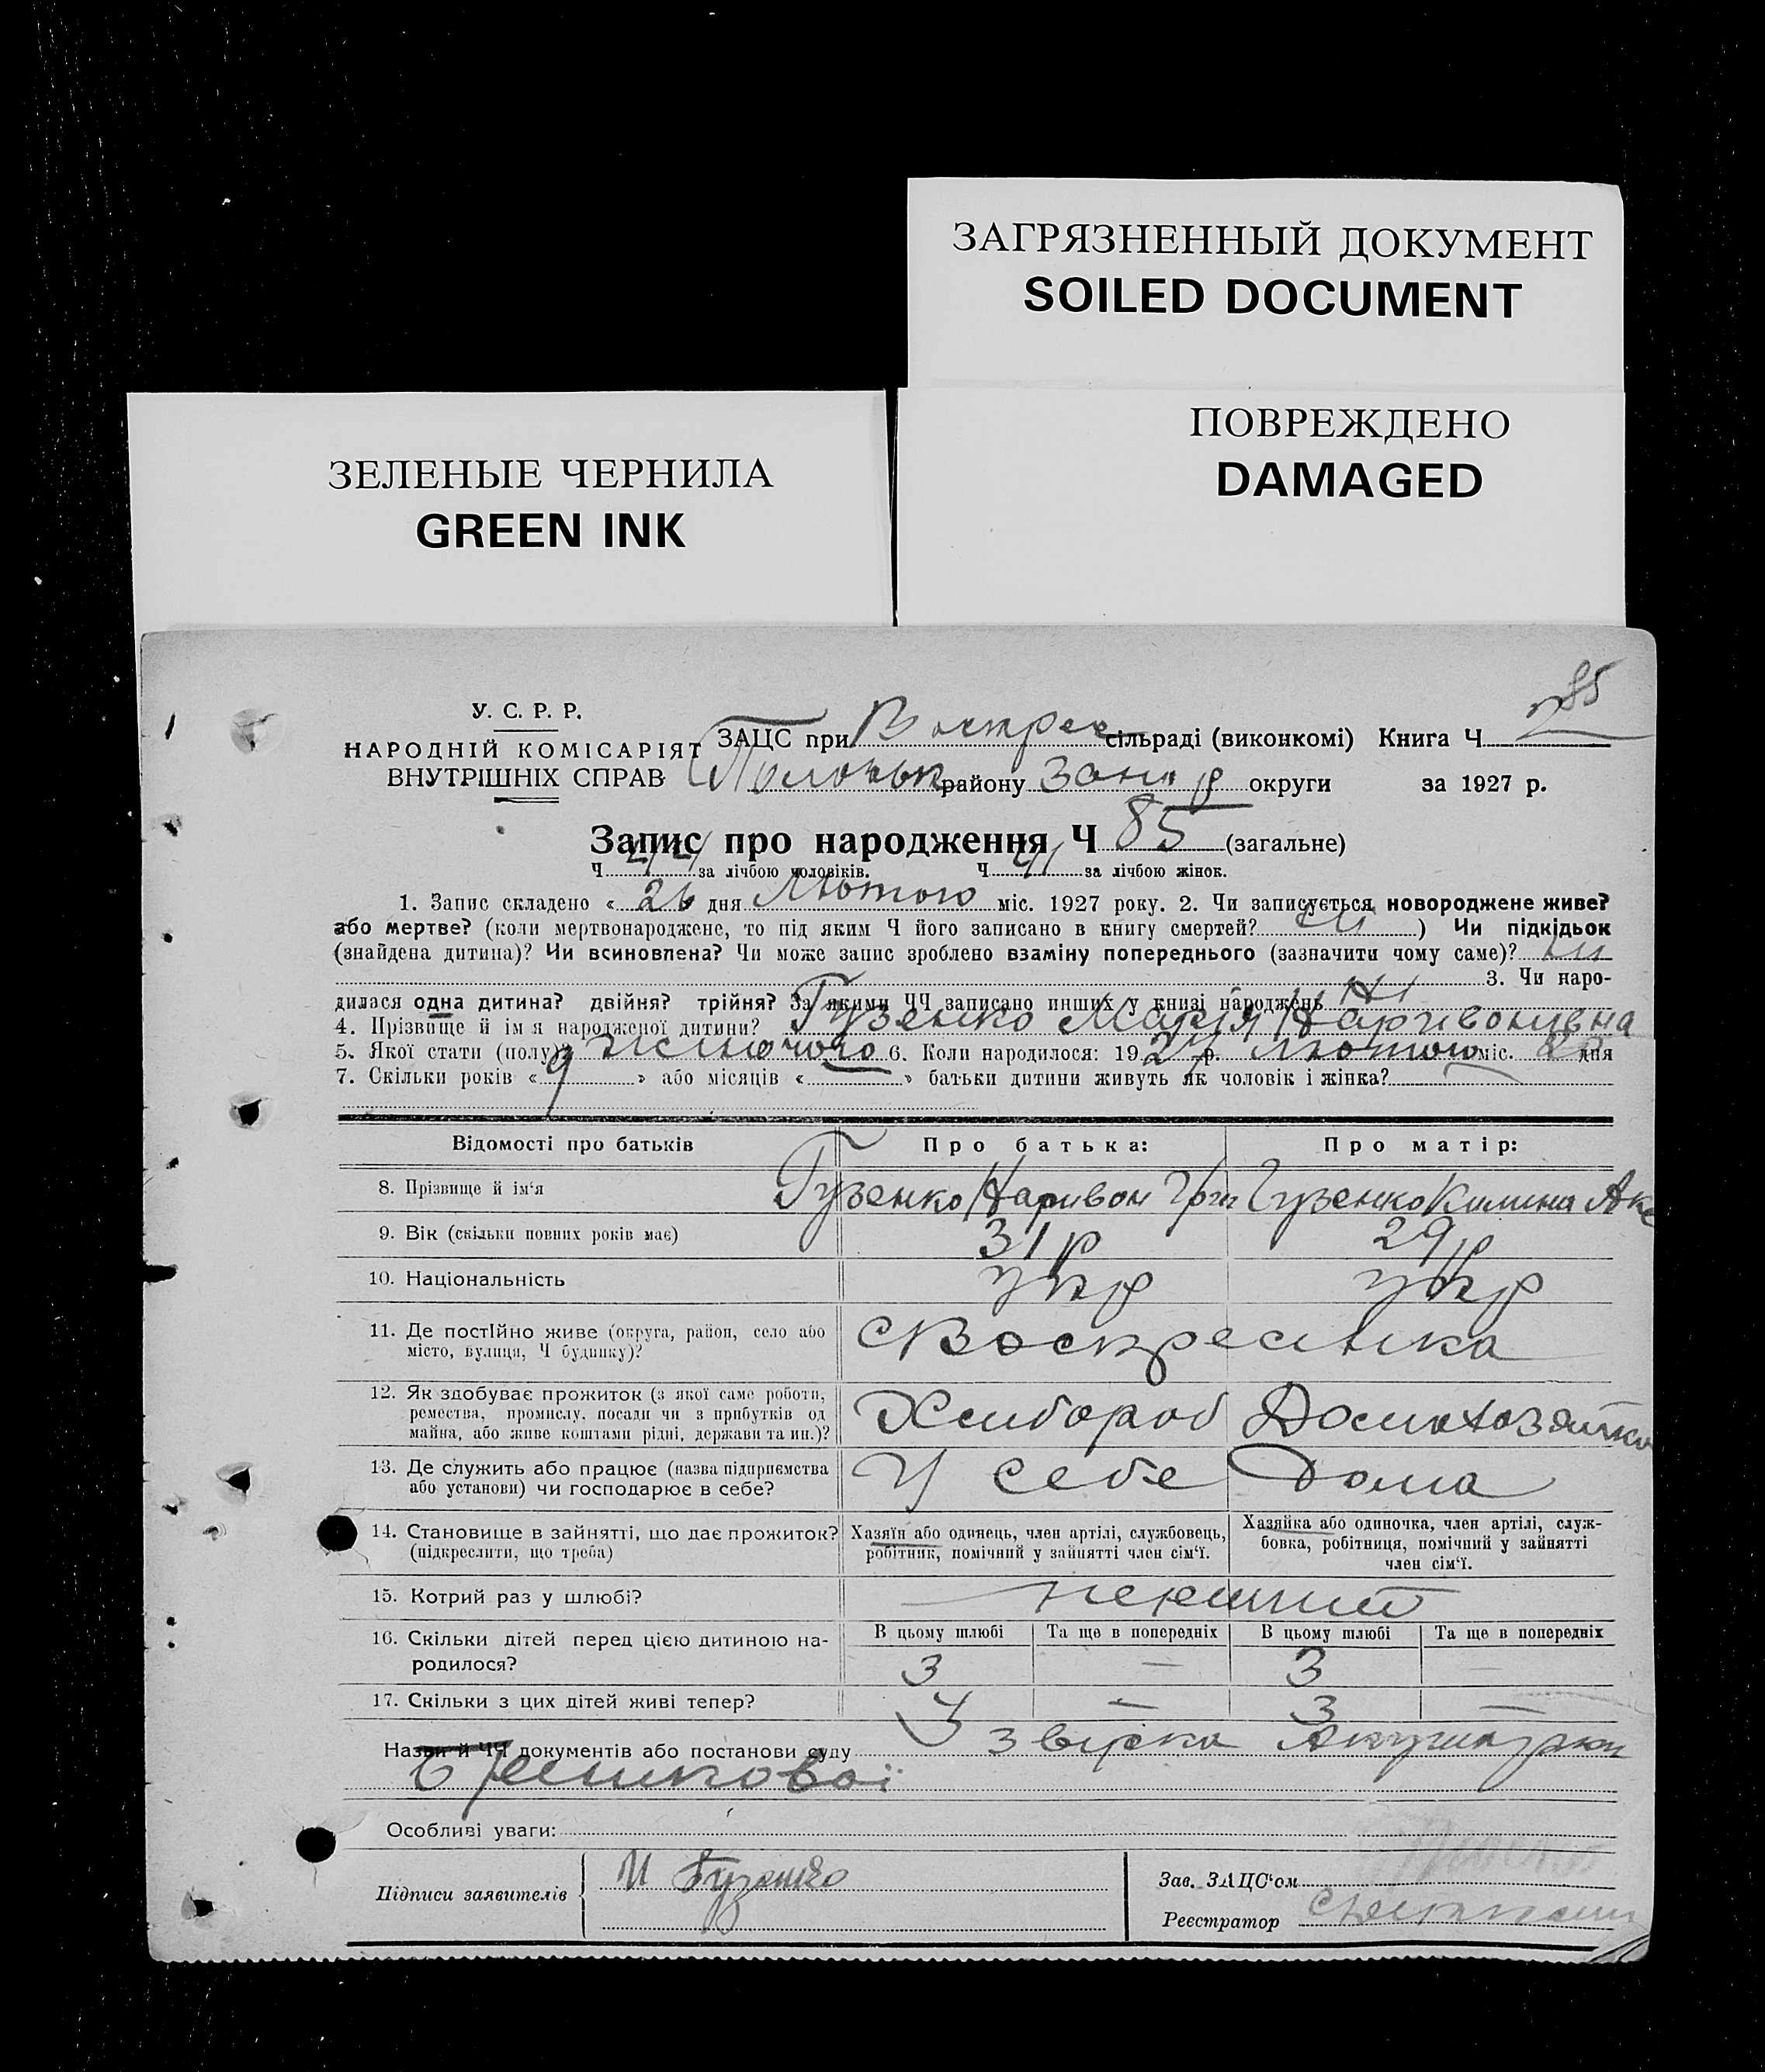 ЗАГРЯЗНЕННЫЙ ДОКУМЕНТ
SOILED DOCUMENT
ПОВРЕЖДЕНО
DAMAGED
ЗЕЛЕНЫЕ ЧЕРНИЛА
GREEN INK
85
У. С. Р. Р.
НАРОДНІЙ КОМІСАРІЯТ
ВНУТРІШНІХ СПРАВ
ЗАЦС при Воскрес сільраді (виконкомі) Книга Ч 2
району Запор округи за 1927 р.
Запис про народження Ч 85 (загальне)
Ч 44 за лічбою чоловіків. Ч 41 за лічбою жінок.
1. Запис складено « 26 дня Лютого міс. 1927 року. 2. Чи записується новороджене живе?
або мертве? (коли мертвонароджене, то під яким Ч його записано в книгу смертей? ) Чи підкідьок
(знайдена дитина)? Чи всиновлена? Чи може запис зроблено взаміну попереднього (зазначити чому саме)?
3. Чи наро-
дилася одна дитина? двійня? трійня? За якими ЧЧ записано инших у книзі народжень
4. Прізвище й ім я народженої дитини? Гузенко Марія Наривонивна
5. Якої стати (полу)? жіночого 6. Коли народилося: 19 27 р. Лютого міс. дня
7. Скільки років « 9 » або місяців « » батьки дитини живуть як чоловік і жінка?
Відомості про батьків Про батька: Про матір:
8. Прізвище й ім‘я Гузенко Наривон Гри Гузенко Килина Аке
9. Вік (скільки повних років має) 31 р 29 р
10. Національність укр укр
11. Де постійно живе (округа, район, село або
місто, вулиця, Ч будинку)? с Воскресенка
12. Як здобуває прожиток (з якої саме роботи,
ремества, промислу, посади чи з прибутків од
майна, або живе коштами рідні, держави та ин.)? Хлибороб Домохозяйка
13. Де служить або працює (назва підприємства
або установи) чи господарює в себе? У себе Дома
14. Становище в зайнятті, що дає прожиток?
(підкреслити, що треба)
Хазяїн або одинець, член артілі, службовець,
робітник, помічний у зайнятті член сім‘ї.
Хазяйка або одиночка, член артілі, служ-
бовка, робітниця, помічний у зайнятті
член сім‘ї.
15. Котрий раз у шлюбі? перший
16. Скільки дітей перед цією дитиною на-
родилося?
В цьому шлюбі Та ще в попередніх В цьому шлюбі Та ще в попередніх
3 — 3 —
17. Скільки з цих дітей живі тепер? 3 — 3 —
Назви й ЧЧ документів або постанови суду
Особливі уваги:
Підписи заявителів Гузенко
Зав. ЗАЦС‘ом
Реєстратор